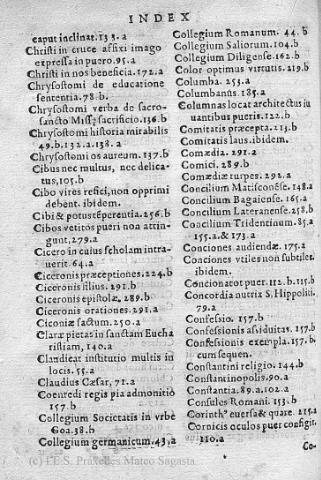 INDEX
caput inclinat. 133. a
Christi in cruce affixi imago
expressa in puero. 95. a
Christi in nos beneficia. 172. a
Chrysostomi de educatione
sententia. 78. b.
Chrysostomi verba de sacro-
sancto Missę sacrificio. 136. b
Chrysostomi historia mirabilis
49. b. 132. a. 138. a
Chrysostomi os aureum. 137. b
Cibus nec multus, nec delica-
tus, 105. b
Cibo vires refici, non opprimi
debent. ibidem.
Cibi & potus tēperentia. 256. b
Cibos vetitos pueri non attin-
gunt, 279. a
Cicero in cuius scholam intra-
uerit. 64. a
Ciceronis præceptiones. 224. b
Ciceronis filius. 291. b
Ciceronis epistolæ. 289. b
Ciceronis orationes. 291. a
Ciconiæ factum. 250. a
Claræ pietas in sanctam Eucha
ristiam, 140. a
Claudicat institutio multis in
locis. 55. a
Claudius Cæsar, 71. a
Coenredi regis pia admonitio
157. b
Collegium Societatis in vrbe
Goa. 38. b
Collegium germanicum. 43, a
Collegium Romanum. 44. b
Collegium Saliorum. 104. b
Collegium Diligense. 162. b
Color optimus virtutis. 219. b
Columba. 253. a
Columbanus. 185. a
Columnas locat architectus iu
uantibus pueris. 122. b
Comitatis præcepta. 213. b
Comitatis laus. ibidem.
Comædia. 291. a
Comici. 289. b
Comædiæ turpes. 292. a
Concilium Matisconēse. 148. a
Concilium Bagaiense. 165. a
Concilium Lateranense. 258. b
Concilium Tridentinum. 85. a
155. a & 173. a
Conciones audiendæ. 175. a
Conciones vtiles non subtiles.
ibidem.
Concionatot puer. 112. b. 115. b
Concordia nutrix S. Hippoliti.
79. a
Confessio. 157. b
Confessionis assiduitas. 157. b
Confessionis exempla. 157. b.
cum sequen.
Constantini religio. 144. b
Constantinopolis. 90. a
Constantia. 89. a. 102. a
Consules Romani. 153. b
Corinthꝰ euersa & quare. 215. a
Cornicis oculos puer configit.
110. a
Co-
(c) I.E.S. Práxedes Mateo Sagasta